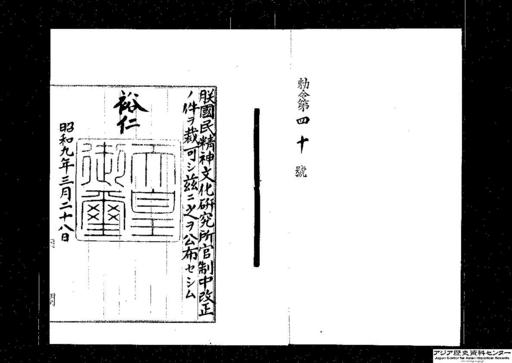 勅令第四十號
朕國民精神文化研究所官制中改正
ノ件ヲ裁可シ茲ニ之ヲ公布セシム
裕仁
天皇御璽
昭和九年三月二十八日
内閣
アジア歴史資料センター
Japan Center for Asian Historical Records